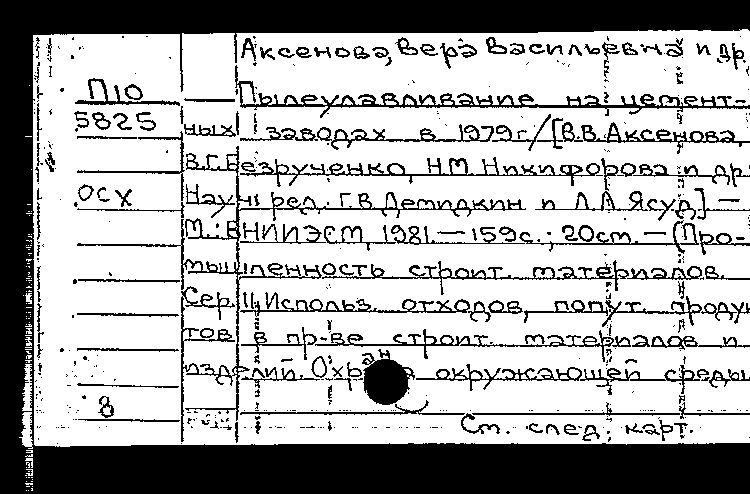 Аксенова, Вера Васильевна и др.
П10
5825
Пылеулавливание на цемент-
ных заводах в 1979г./[В.В.Аксенова,
В.Г.Безрученко, Н.М.Никифорова и др.
осх
Научн ред. Г.В.Демидкин и Л.А.Ясуд] —
М.: ВНИИЭСМ, 1981. — 159с.; 20см. — (Про-
мышленность строит. материалов.
Сер. 11, Использ. отходов, попут. продук
тов в пр-ве строит. материалов и
изделий. Охрана окружающей среды
8
См. след. карт.